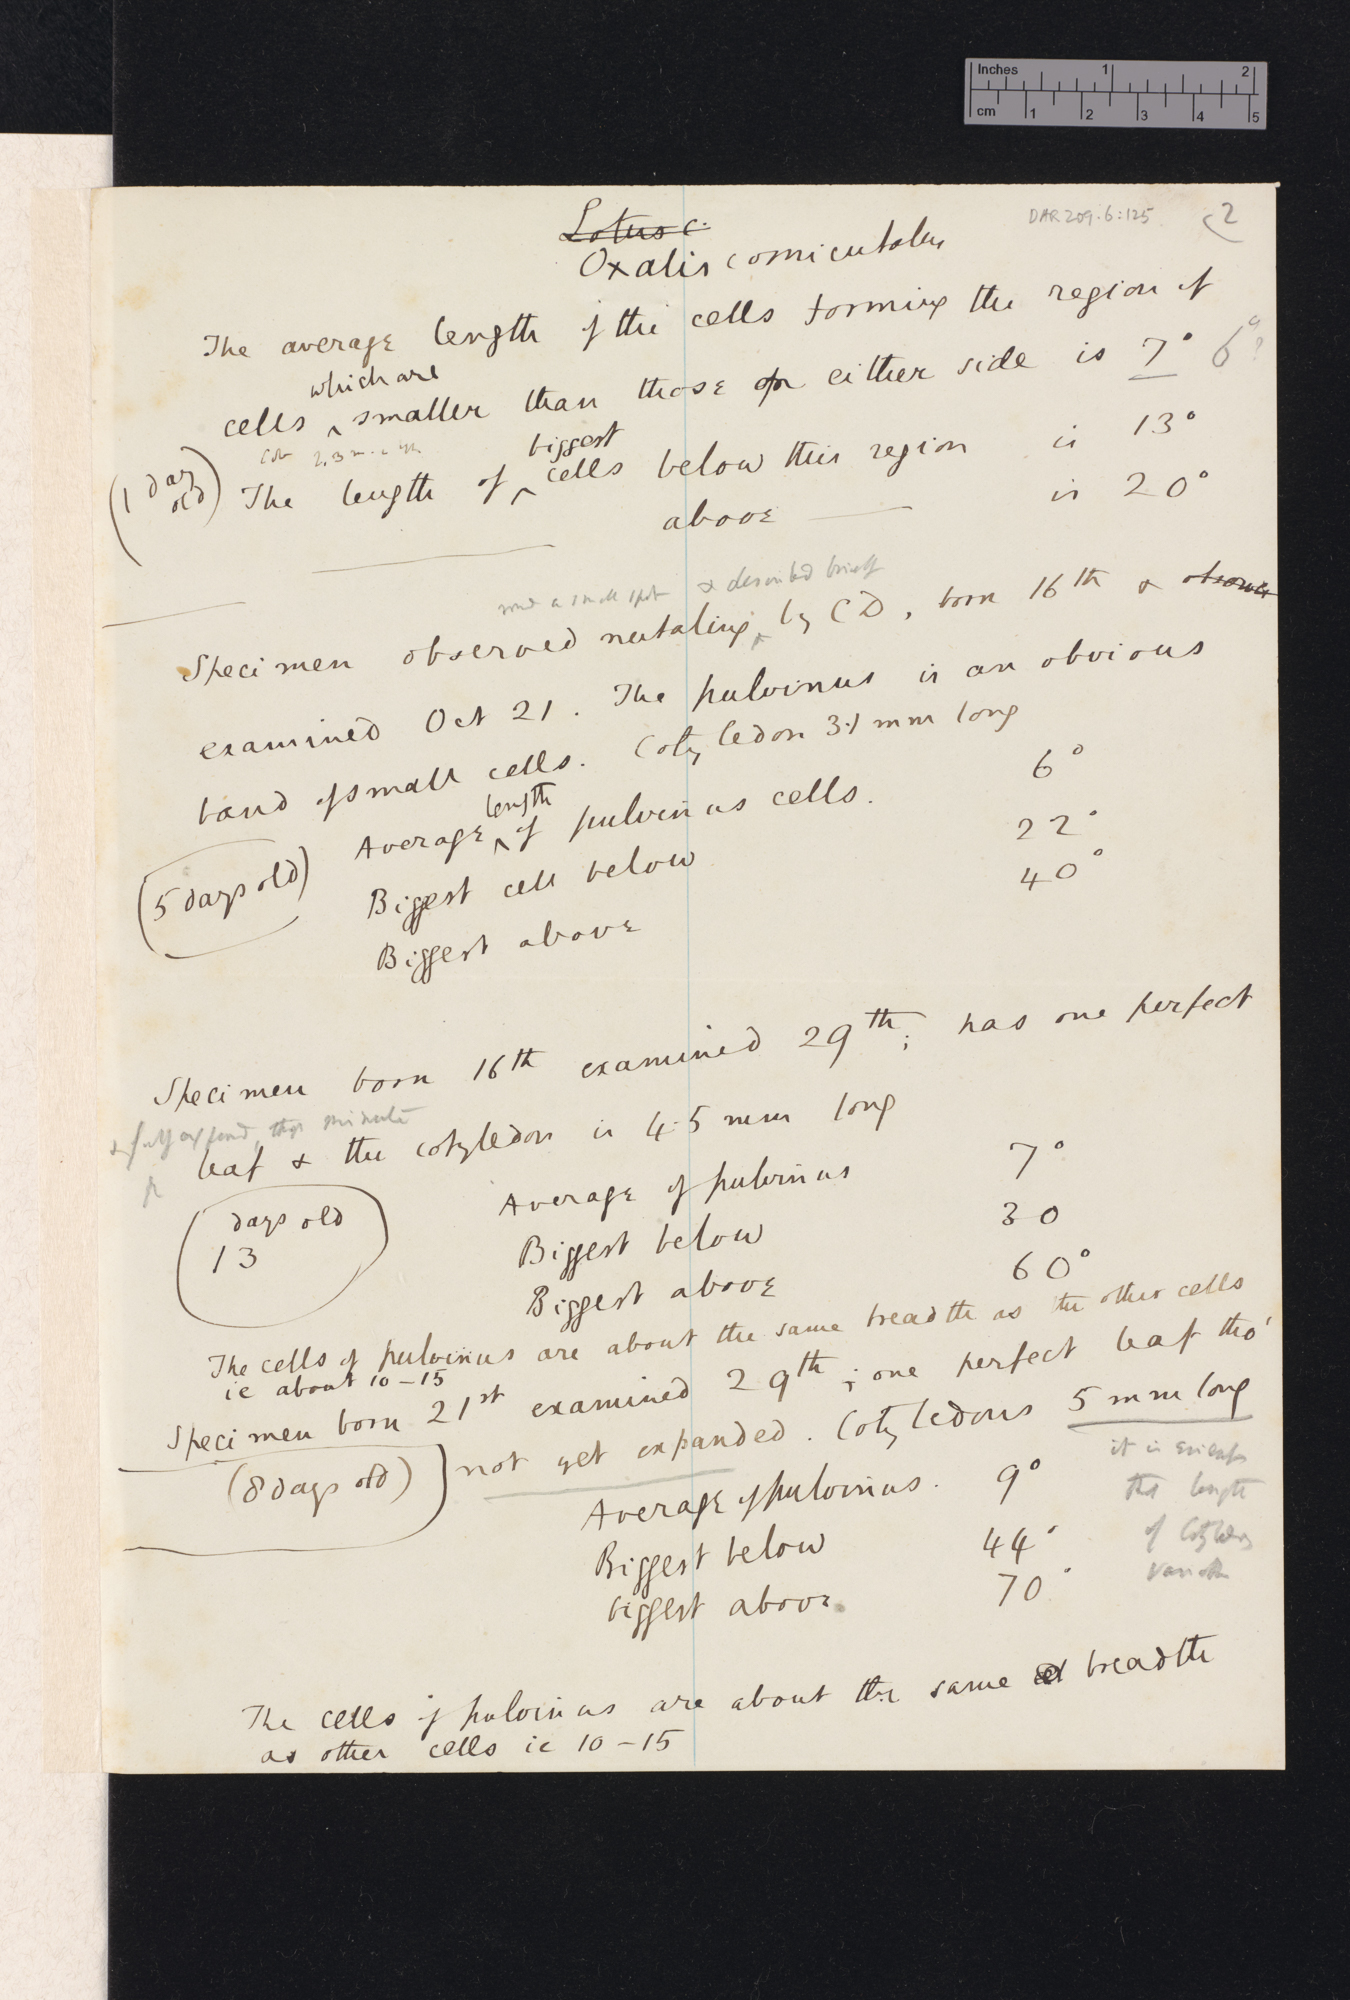 Inches 1 2
cm 1 2 3 4 5
DAR 209.6:125 2
Lotus c.
Oxalis corniculata
The average length of the cells forming the region of
which are
cells ‸ smaller than those on either side is 7° 6°?
biggest
(1 day old) The length of ‸ cells below this region is 13°
above —— is 20°
& described
Specimen observed nutating ‸ by CD, born 16th & observed
examined Oct 21. The pulvinus is an obvious
band of small cells. Cotyledon 3.1 mm long
length
Average ‸ of pulvinus cells. 6°
(5 days old) Biggest cell below 22°
Biggest above 40°
Specimen born 16th examined 29th; has one perfect
& fully expand, tho minute
leaf & the cotyledon is 4.5 mm long
Average of pulvinus 7°
days old
13
Biggest below 30
Biggest above 60°
The cells of pulvinus are about the same breadth as the other cells
ie about 10–15
Specimen born 21st examined 29th; one perfect leaf tho'
(8 days old) not yet expanded. Cotyledons 5 mm long
Average of pulvinus. 9°
Biggest below 44°
biggest above 70°
it is
the length
of Cotyledons
The cells of pulvinus are about the same breadth
as other cells ie 10–15